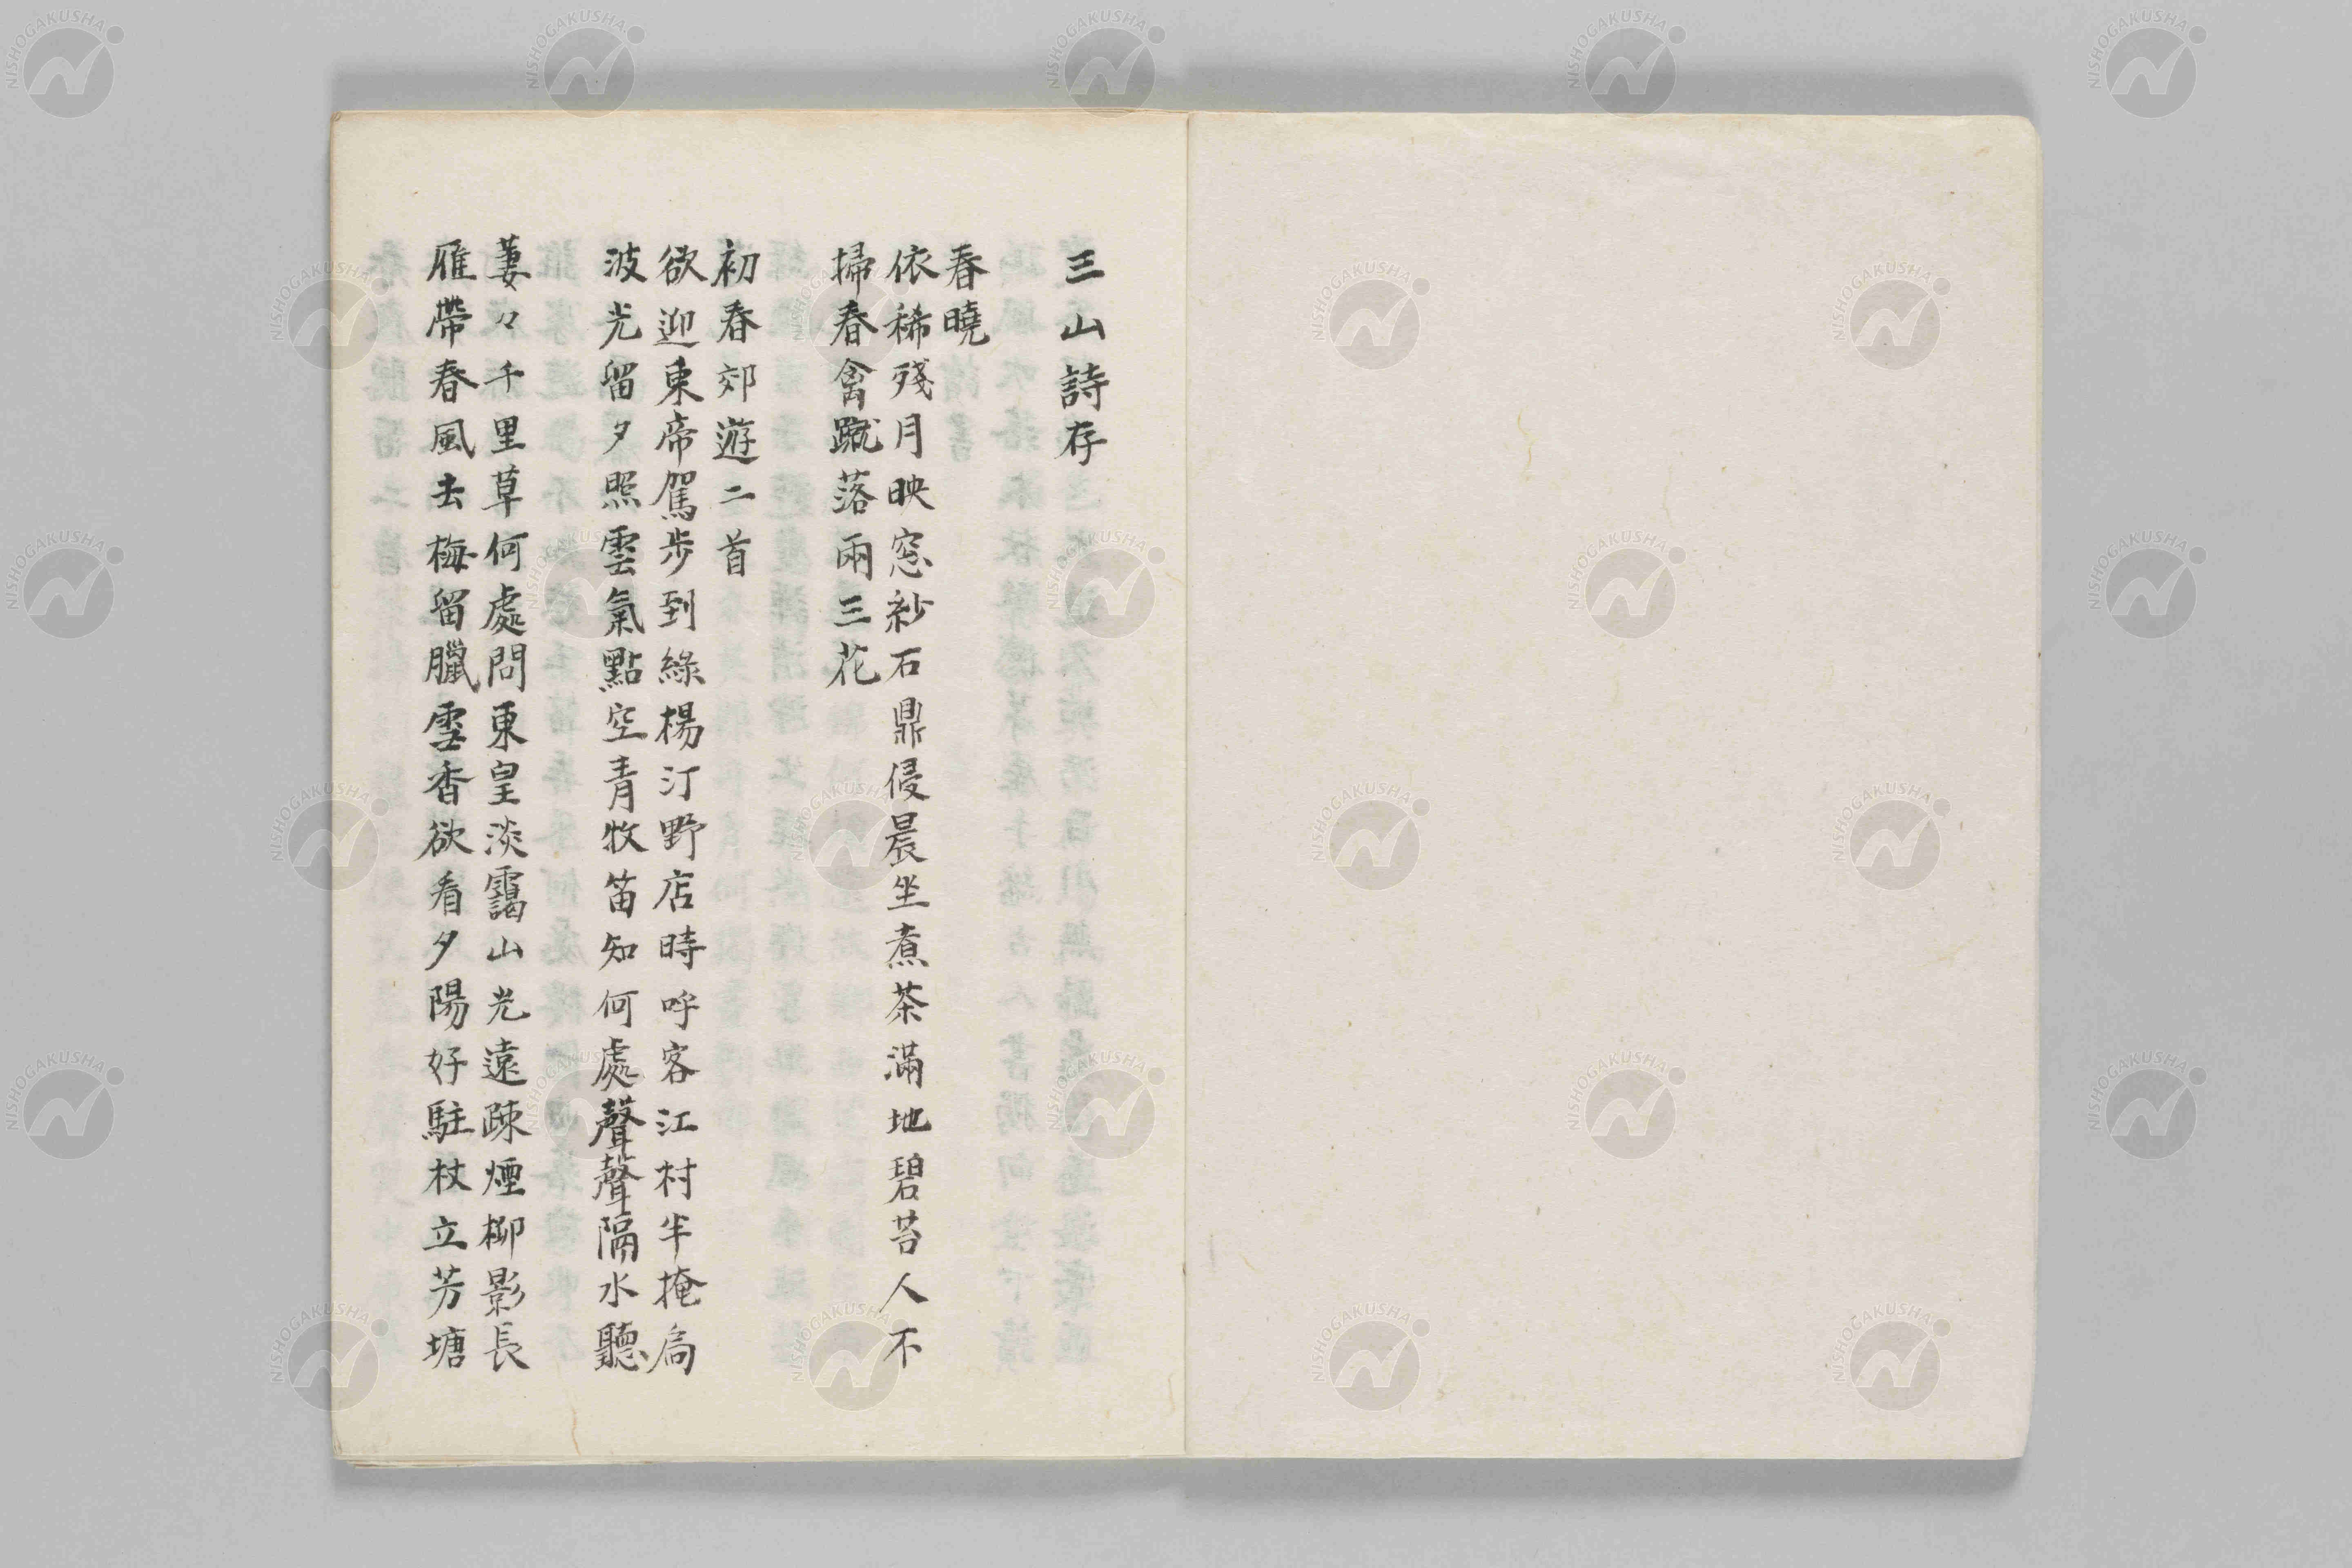 三山詩存
春曉
依稀殘月映窓紗石鼎侵晨坐煮茶滿地碧苔人不
掃春禽蹴落兩三花
初春郊遊二首
欲迎東帝駕步到綠楊汀野店時呼客江村半掩扃
波光留夕照雲氣點空青牧笛知何處聲聲隔水聽
萋々千里草何處問東皇淡靄山光遠疎煙柳影長
雁帶春風去梅留臘雪香欲看夕陽好駐杖立芳塘